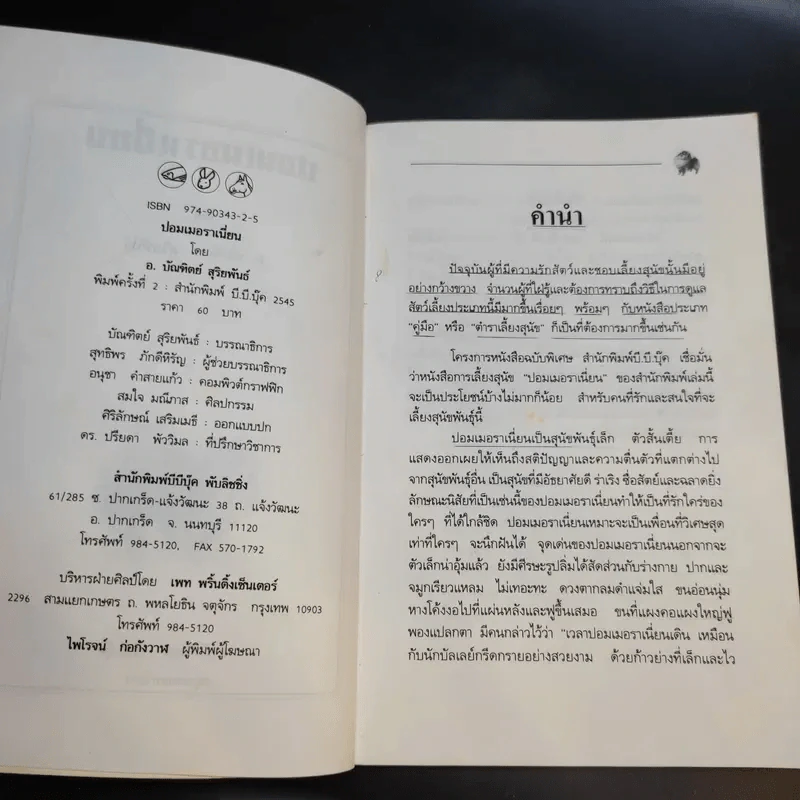 ISBN 974-90343-2-5
ปอมเมอราเนี่ยน
โดย
อ. บัณฑิตย์ สุริยพันธ์
พิมพ์ครั้งที่ 2 : สำนักพิมพ์ บี.บี.บุ๊ค 2545
ราคา 60 บาท
บัณฑิตย์ สุริยพันธ์ : บรรณาธิการ
สุทธิพร ภักดีหิรัญ : ผู้ช่วยบรรณาธิการ
อนุชา คำสายแก้ว : คอมพิวต์กราฟฟิก
สมใจ มณีภาส : ศิลปกรรม
ศิริลักษณ์ เสริมเมธี : ออกแบบปก
ดร. ปรียดา พัววิมล : ที่ปรึกษาวิชาการ
สำนักพิมพ์บีบีบุ๊ค พับลิชชิ่ง
61/285 ซ. ปากเกร็ด-แจ้งวัฒนะ 38 ถ. แจ้งวัฒนะ
อ. ปากเกร็ด จ. นนทบุรี 11120
โทรศัพท์ 984-5120, FAX 570-1792
บริหารฝ่ายศิลป์โดย เพท พริ้นติ้งเซ็นเตอร์
2296 สามแยกเกษตร ถ. พหลโยธิน จตุจักร กรุงเทพ 10903
โทรศัพท์ 984-5120
ไพโรจน์ ก่อกังวาฬ ผู้พิมพ์ผู้โฆษณา
คำนำ
ปัจจุบันผู้ที่มีความรักสัตว์และชอบเลี้ยงสุนัขนั้นมีอยู่
อย่างกว้างขวาง จำนวนผู้ที่ใฝ่รู้และต้องการทราบถึงวิธีในการดูแล
สัตว์เลี้ยงประเภทนี้มีมากขึ้นเรื่อยๆ พร้อมๆ กับหนังสือประเภท
"คู่มือ" หรือ "ตำราเลี้ยงสุนัข" ก็เป็นที่ต้องการมากขึ้นเช่นกัน
โครงการหนังสือฉบับพิเศษ สำนักพิมพ์บี.บี.บุ๊ค เชื่อมั่น
ว่าหนังสือการเลี้ยงสุนัข "ปอมเมอราเนี่ยน" ของสำนักพิมพ์เล่มนี้
จะเป็นประโยชน์บ้างไม่มากก็น้อย สำหรับคนที่รักและสนใจที่จะ
เลี้ยงสุนัขพันธุ์นี้
ปอมเมอราเนี่ยนเป็นสุนัขพันธุ์เล็ก ตัวสั้นเตี้ย การ
แสดงออกเผยให้เห็นถึงสติปัญญาและความตื่นตัวที่แตกต่างไป
จากสุนัขพันธุ์อื่น เป็นสุนัขที่มีอัธยาศัยดี ร่าเริง ซื่อสัตย์และฉลาดยิ่ง
ลักษณะนิสัยที่เป็นเช่นนี้ของปอมเมอราเนี่ยนทำให้เป็นที่รักใคร่ของ
ใครๆ ที่ได้ใกล้ชิด ปอมเมอราเนี่ยนเหมาะจะเป็นเพื่อนที่วิเศษสุด
เท่าที่ใครๆ จะนึกฝันได้ จุดเด่นของปอมเมอราเนี่ยนนอกจากจะ
ตัวเล็กน่าอุ้มแล้ว ยังมีศีรษะรูปลิ่มได้สัดส่วนกับร่างกาย ปากและ
จมูกเรียวแหลม ไม่เทอะทะ ดวงตากลมดำแจ่มใส ขนอ่อนนุ่ม
หางโค้งงอไปที่แผ่นหลังและฟูขึ้นเสมอ ขนที่แผงคอแผงใหญ่ฟู
พองแปลกตา มีคนกล่าวไว้ว่า "เวลาปอมเมอราเนี่ยนเดิน เหมือน
กับนักบัลเลย์กรีดกรายอย่างสวยงาม ด้วยก้าวย่างที่เล็กและไว